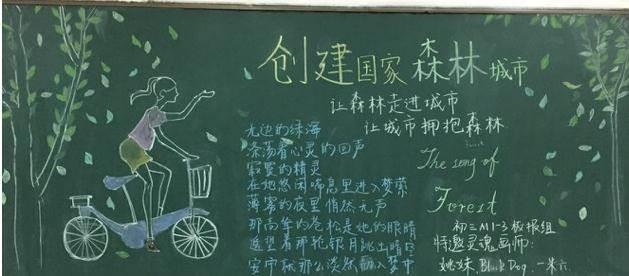 创建国家森林城市
让森林走进城市
让城市拥抱森林
无边的绿海
涤荡着心灵的回声
寂寞的精灵
在悠闲喘息里进入
薄雾的夜里悄然无声
那高耸的苍松是她的眼睛
遥望着那轮银月跳出
安宁那么淡然入梦中
The song of
Forest
初三M1-3板报组
特邀灵魂画师:
姚妹、Black Dog、一米六